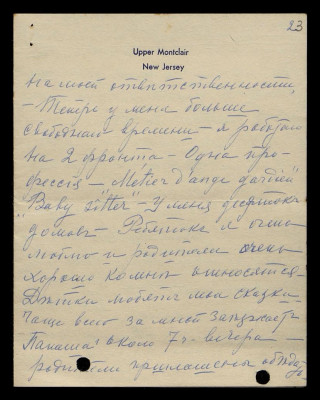 23
Upper Montclair
New Jersey
на моей ответственности
- Теперь у меня больше
свободнаго времени - я работаю
на 2 фронта - Одна про-
фессiя - "Métier d'ange gardien"
"Baby sitter" - У меня десяток
домовъ - Ребятокъ я очень
люблю и родители очень
хорошо ко мнѣ относятся -
Дѣтки любятъ мои сказки
Чаще всего за мной заѣзжаетъ
Папаша! Около 7 ч. вечера -
родители приглашены обѣдать